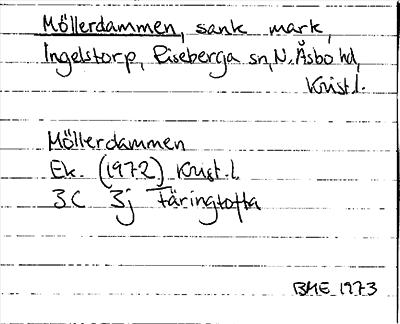 Möllerdammen, sank mark,
Ingelstorp, Riseberga sn, N. Åsbo hd,
Krist.l.
Möllerdammen
Ek. (1972) Krist.l.
3C 3j Färingtofta
BME 1973